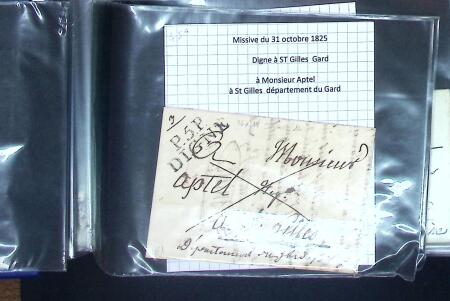 Missive du 31 octobre 1825
Digne à ST Gilles Gard
à Monsieur Aptel
à St Gilles département du Gard
P.5.P.
DIGNE
Monsieur
aptel
Département du gard